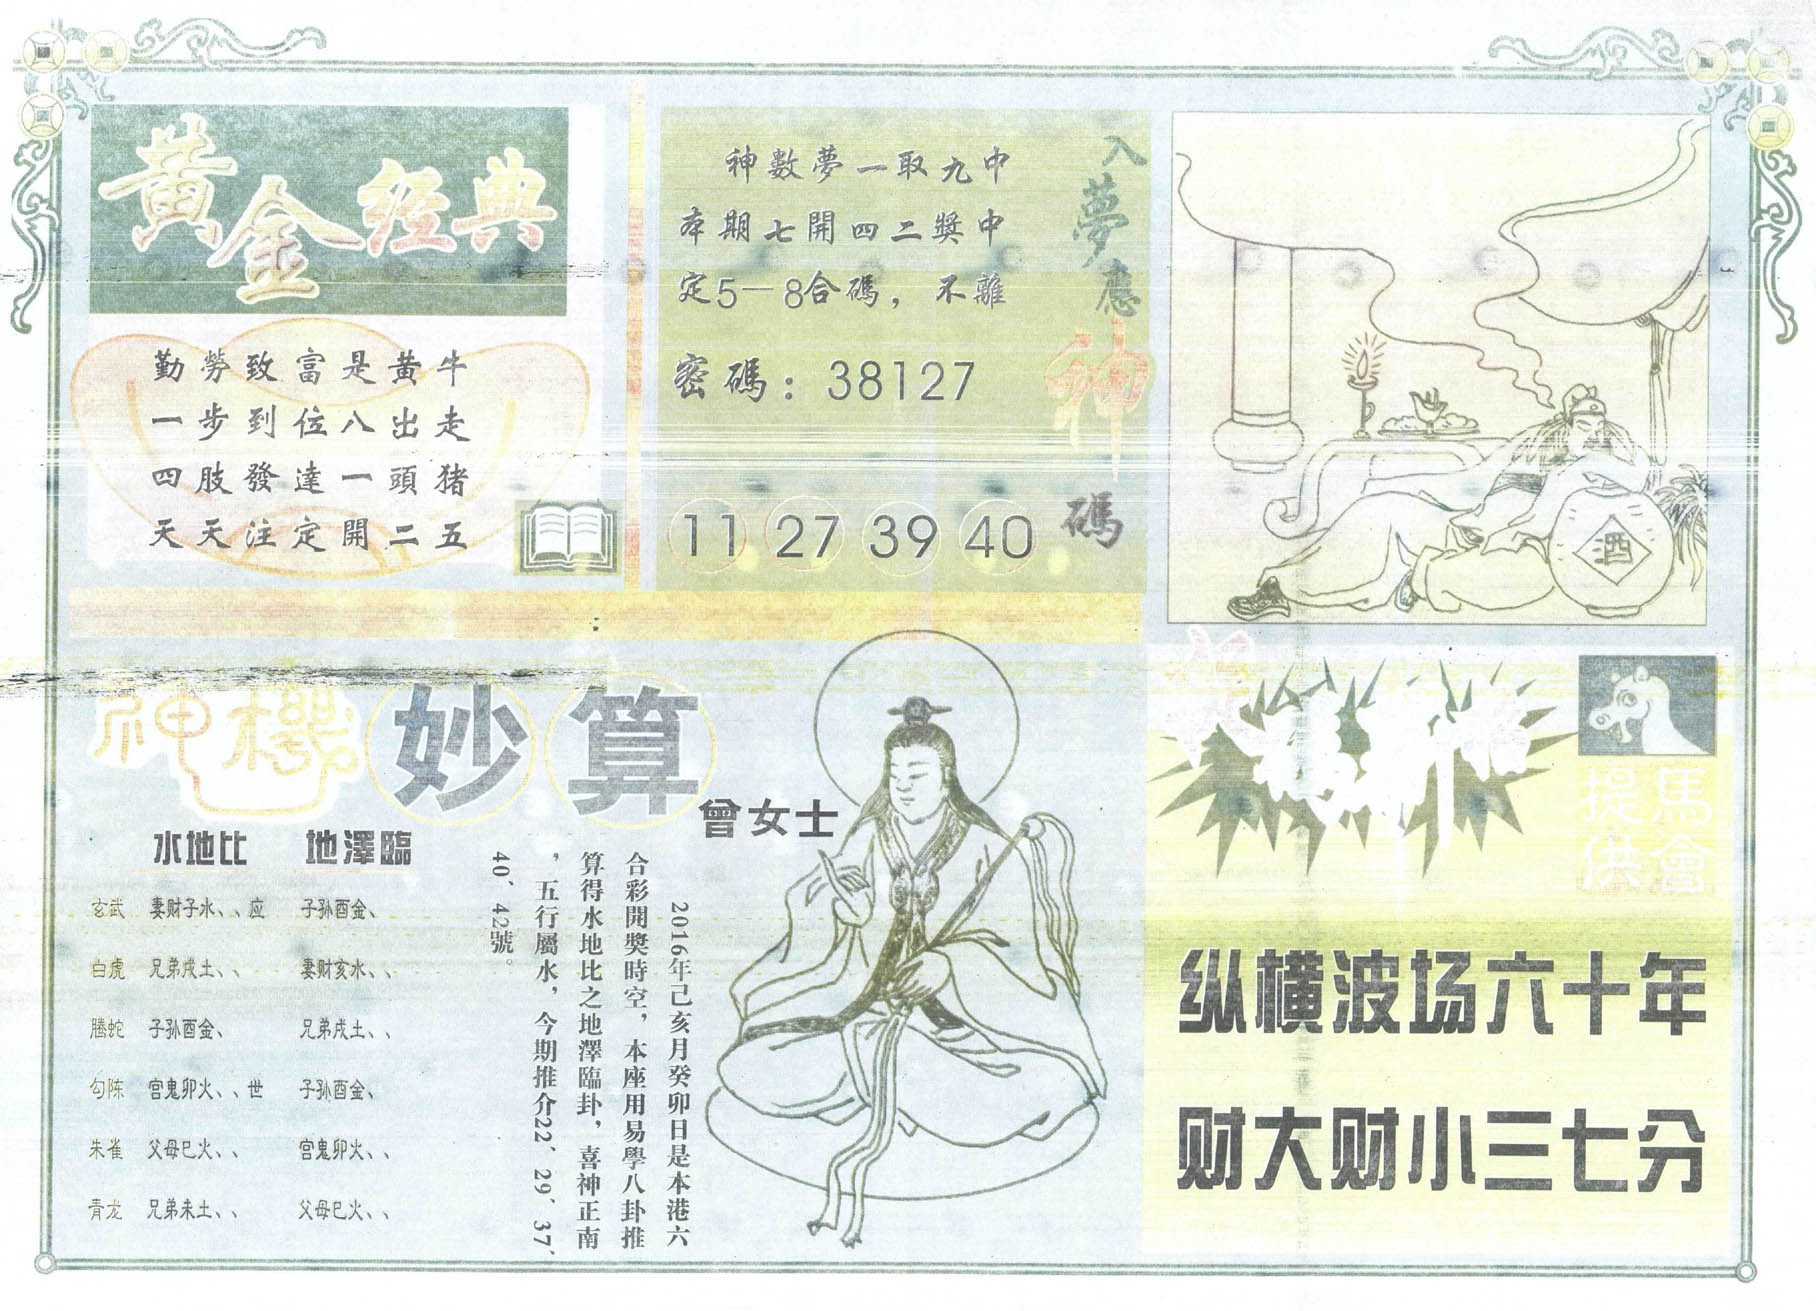 黄金经典
勤勞致富是黄牛
一步到位八出走
四肢發達一頭猪
天天注定開二五
入夢應神碼
神數夢一取九中
本期七開四二獎中
定5—8合碼，不離
密碼：38127
11 27 39 40
酒
神機妙算
曾女士
水地比 地澤臨
玄武 妻财子水、、应 子孙酉金、
白虎 兄弟戌土、、 妻财亥水、、
腾蛇 子孙酉金、 兄弟戌土、、
勾陈 宫鬼卯火、、世 子孙酉金、
朱雀 父母巳火、、 宫鬼卯火、、
青龙 兄弟未土、、 父母巳火、、
2016年己亥月癸卯日是本港六
合彩開獎時空，本座用易學八卦推
算得水地比之地澤臨卦，喜神正南
，五行屬水，今期推介22、29、37、
40、42號。
馬會
提供
纵横波场六十年
财大财小三七分